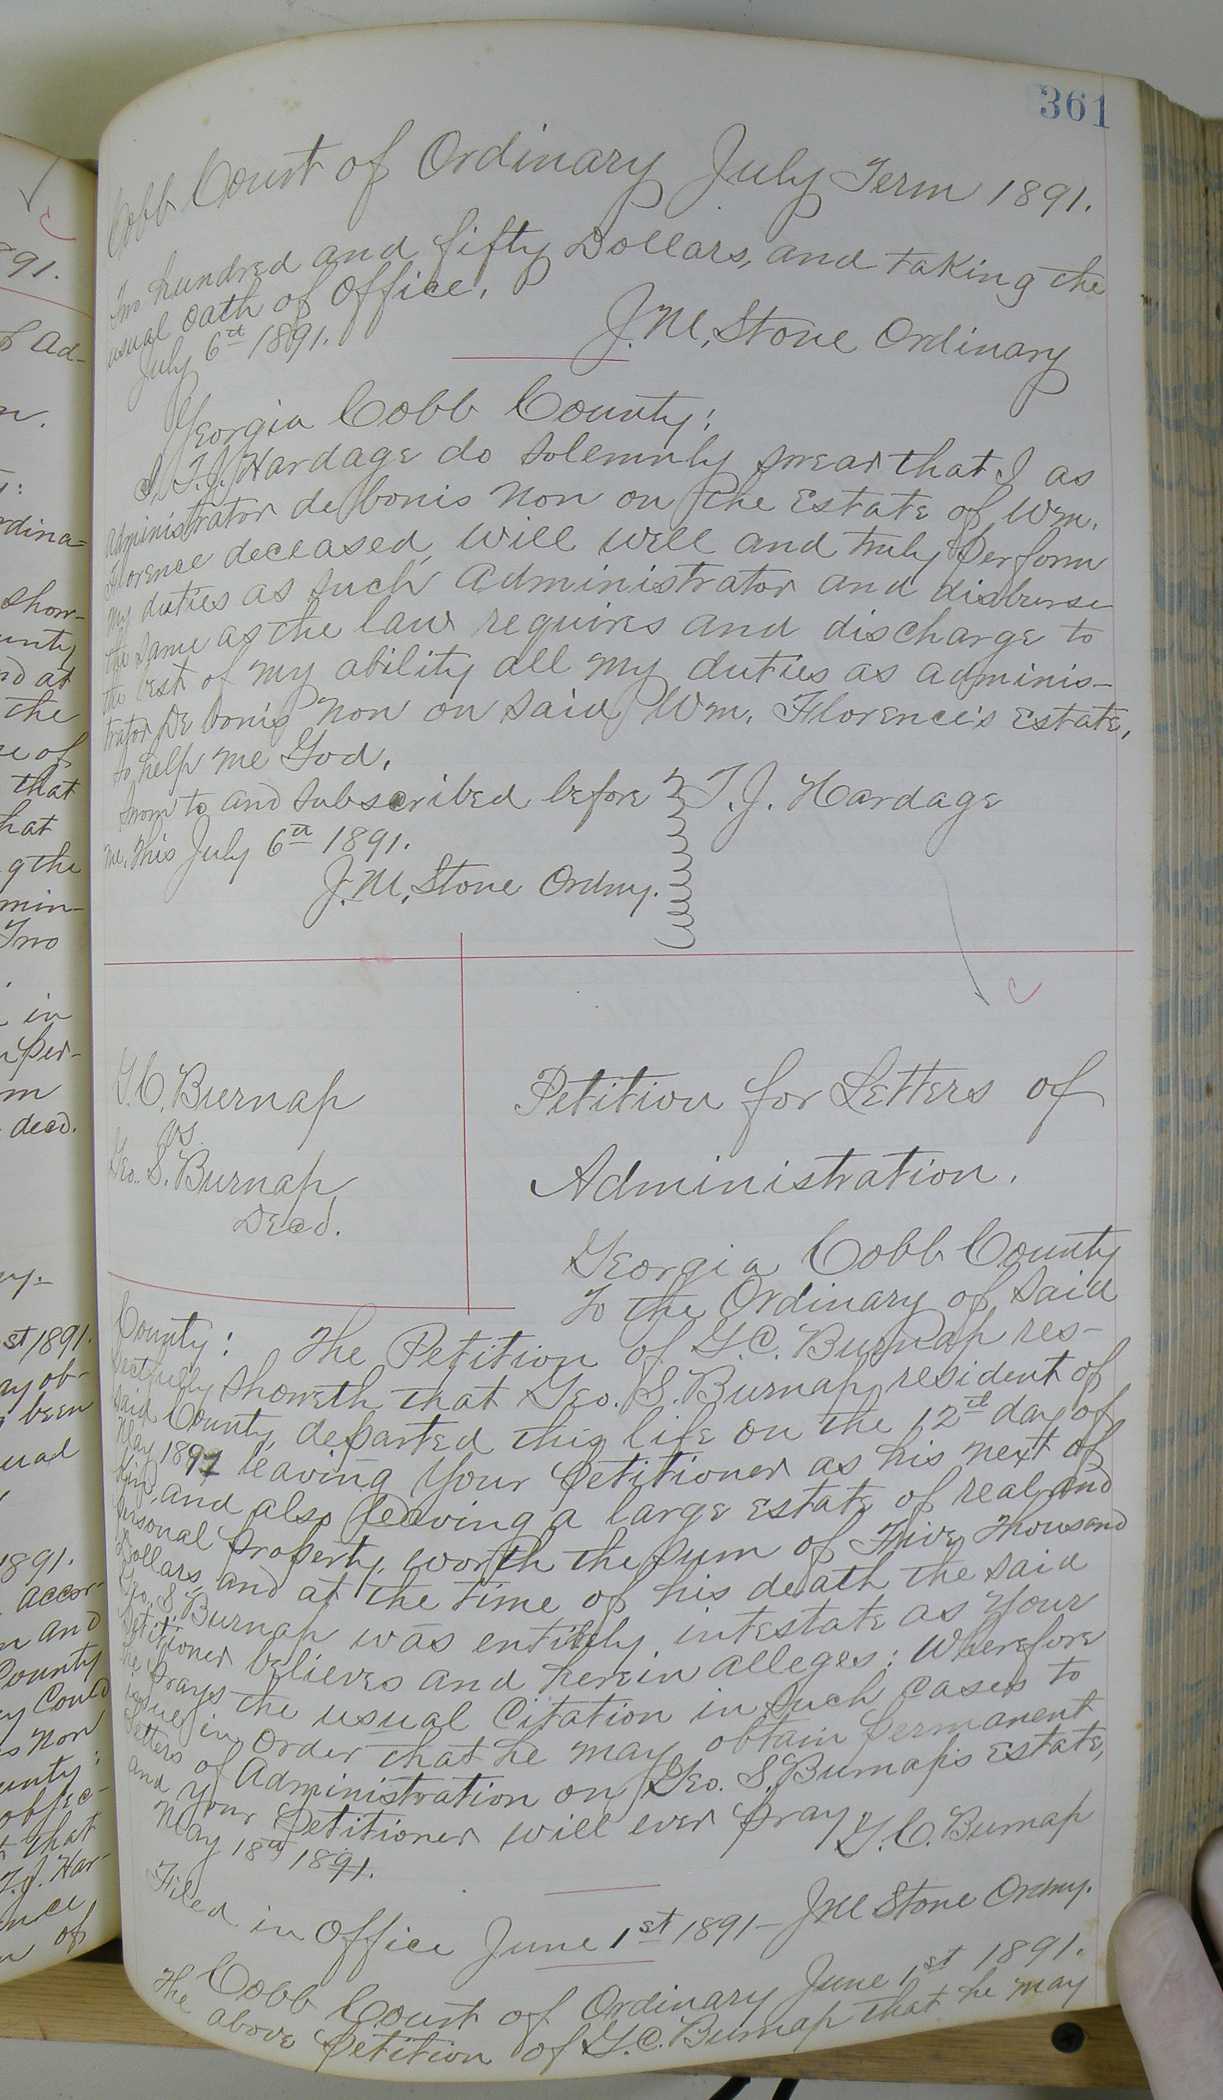 361
Cobb Court of Ordinary July Term 1891.
Two hundred and fifty Dollars, and taking the
usual oath of Office.
July 6th 1891.
J. M. Stone Ordinary
Georgia Cobb County:
I, T. J. Hardage do solemnly swear that I as
administrator de bonis non on the Estate of Wm.
Florence deceased, will well and truly perform
my duties as such Administrator and disburse
the same as the law requires and discharge to
the best of my ability all my duties as adminis-
trator De bonis non on said Wm. Florence's Estate,
so help me God.
Sworn to and subscribed before
me, this July 6th 1891.
J. M. Stone Ordny.
T. J. Hardage
G. C. Burnap
vs.
Geo. S. Burnap,
Decd.
Petition for Letters of
Administration.
Georgia Cobb County
To the Ordinary of said
County: The Petition of G. C. Burnap res-
pectfully showeth that Geo. S. Burnap, resident of
said County, departed this life on the 12th day of
May 1891 leaving Your petitioner as his next of
Kin, and also leaving a large estate of real and
personal property, worth the sum of Five Thousand
Dollars, and at the time of his death the said
Geo. S. Burnap was entirely intestate as Your
Petitioner believes and herein alleges: Wherefore
he prays the usual Citation in such cases to
issue in order that he may obtain permanent
Letters of Administration on Geo. S. Burnap's Estate,
and Your petitioner will ever pray &
May 18th 1891.
G. C. Burnap
Filed in Office June 1st 1891- J M Stone Ordny.
Cobb Court of Ordinary June 1st 1891.
The above petition of G. C. Burnap that he may